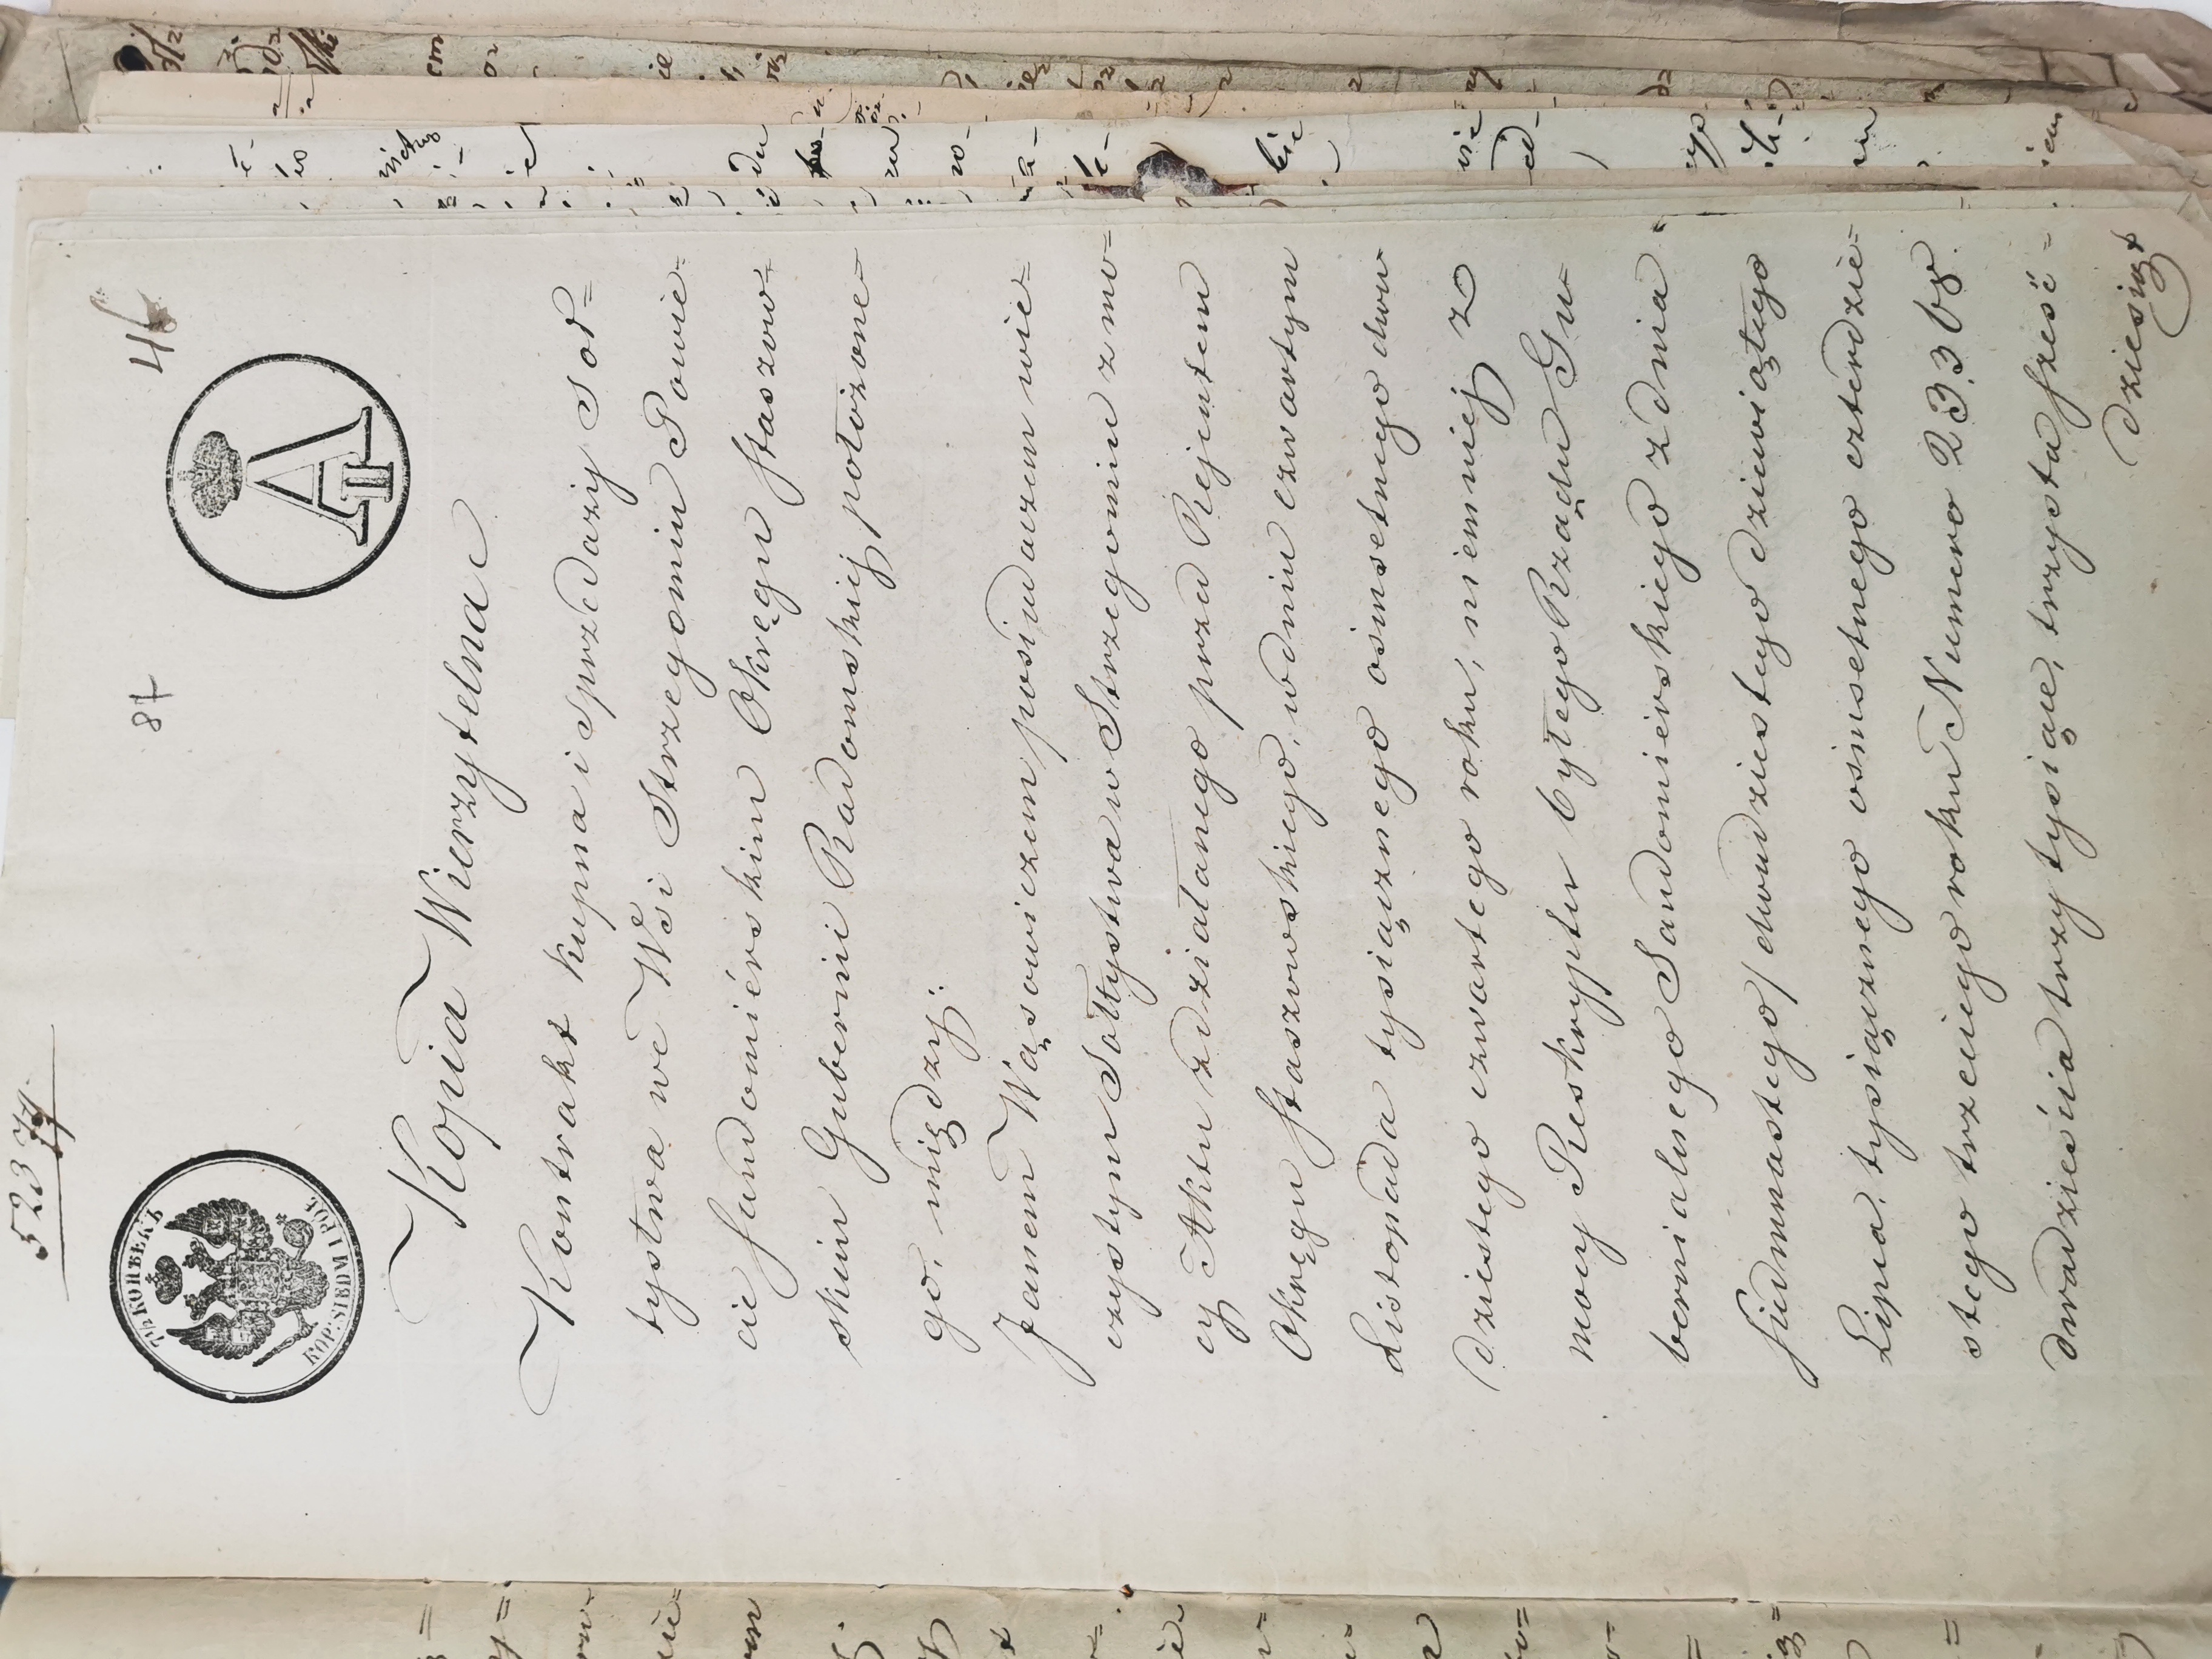 523
87
46
7½ КОПѢЕКЪ
KOP: SIEDM I PÓŁ
A II
Kopia Wierzytelna
Kontrakt kupna i sprzedaży Soł=
tystwa we Wsi Strzegomiu Powie=
cie Sandomiérskim Okręgu Staszow=
skim Gubernii Radomskiéj położone=
go, między:
Janem Wąsowiczem posiadaczem wie=
czystym Sołtystwa w Strzegomiu z mo=
cy Aktu zdziałanego przed Rejentem
Okręgu Staszowskiego, w dniu czwartym
Listopada tysiącznego osimsetnego dwu
dziestego czwartego roku, niemniéj z
mocy Reskryptu byłego Rządu Gu=
bernialnego Sandomierskiego z dnia
siedmnastego/dwudziestego dziewiątego
Lipca, tysiącznego osimsetnego czterdzie=
stego trzeciego roku Numero 23,368
dwadzieścia trzy tysiące, trzysta sześć=
dziesiąt